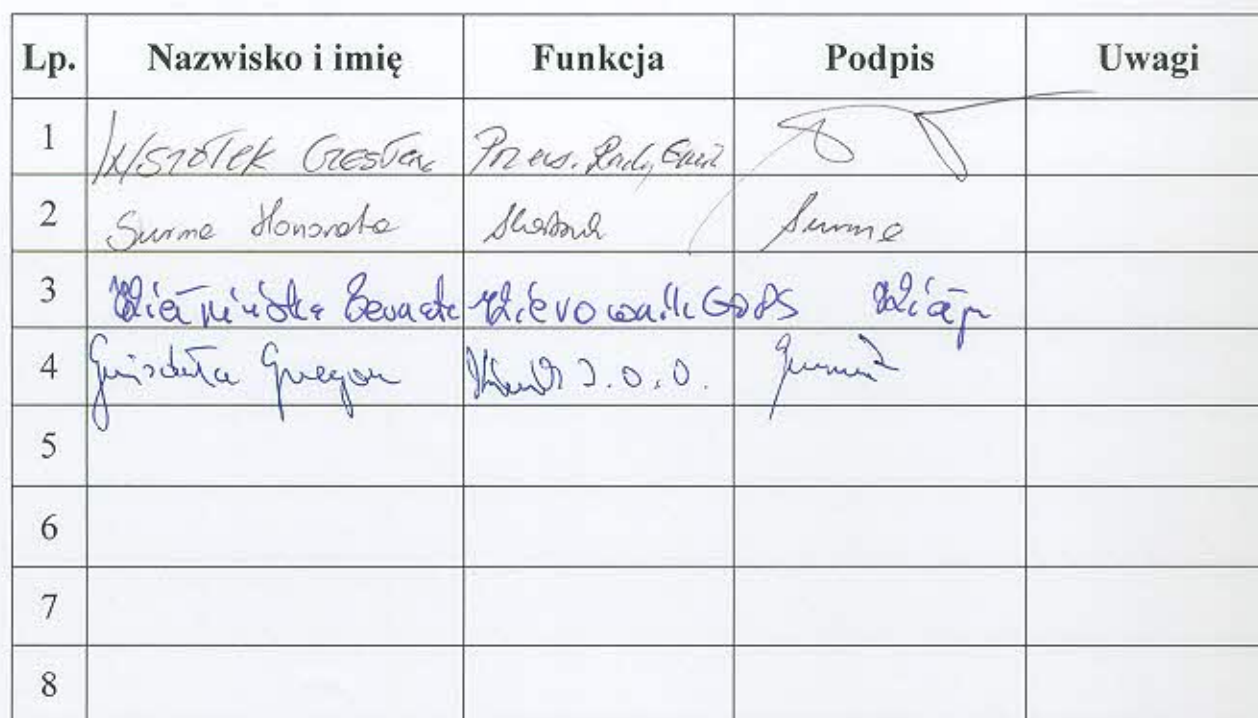 Lp. Nazwisko i imię Funkcja Podpis Uwagi
1 Wszołek Czesław Przew. Rady Gmin
2 Surma Honorata Skarbnik Surma
3 Renata kierownik GOPS
4 Grzegorz J.O.O.
5
6
7
8